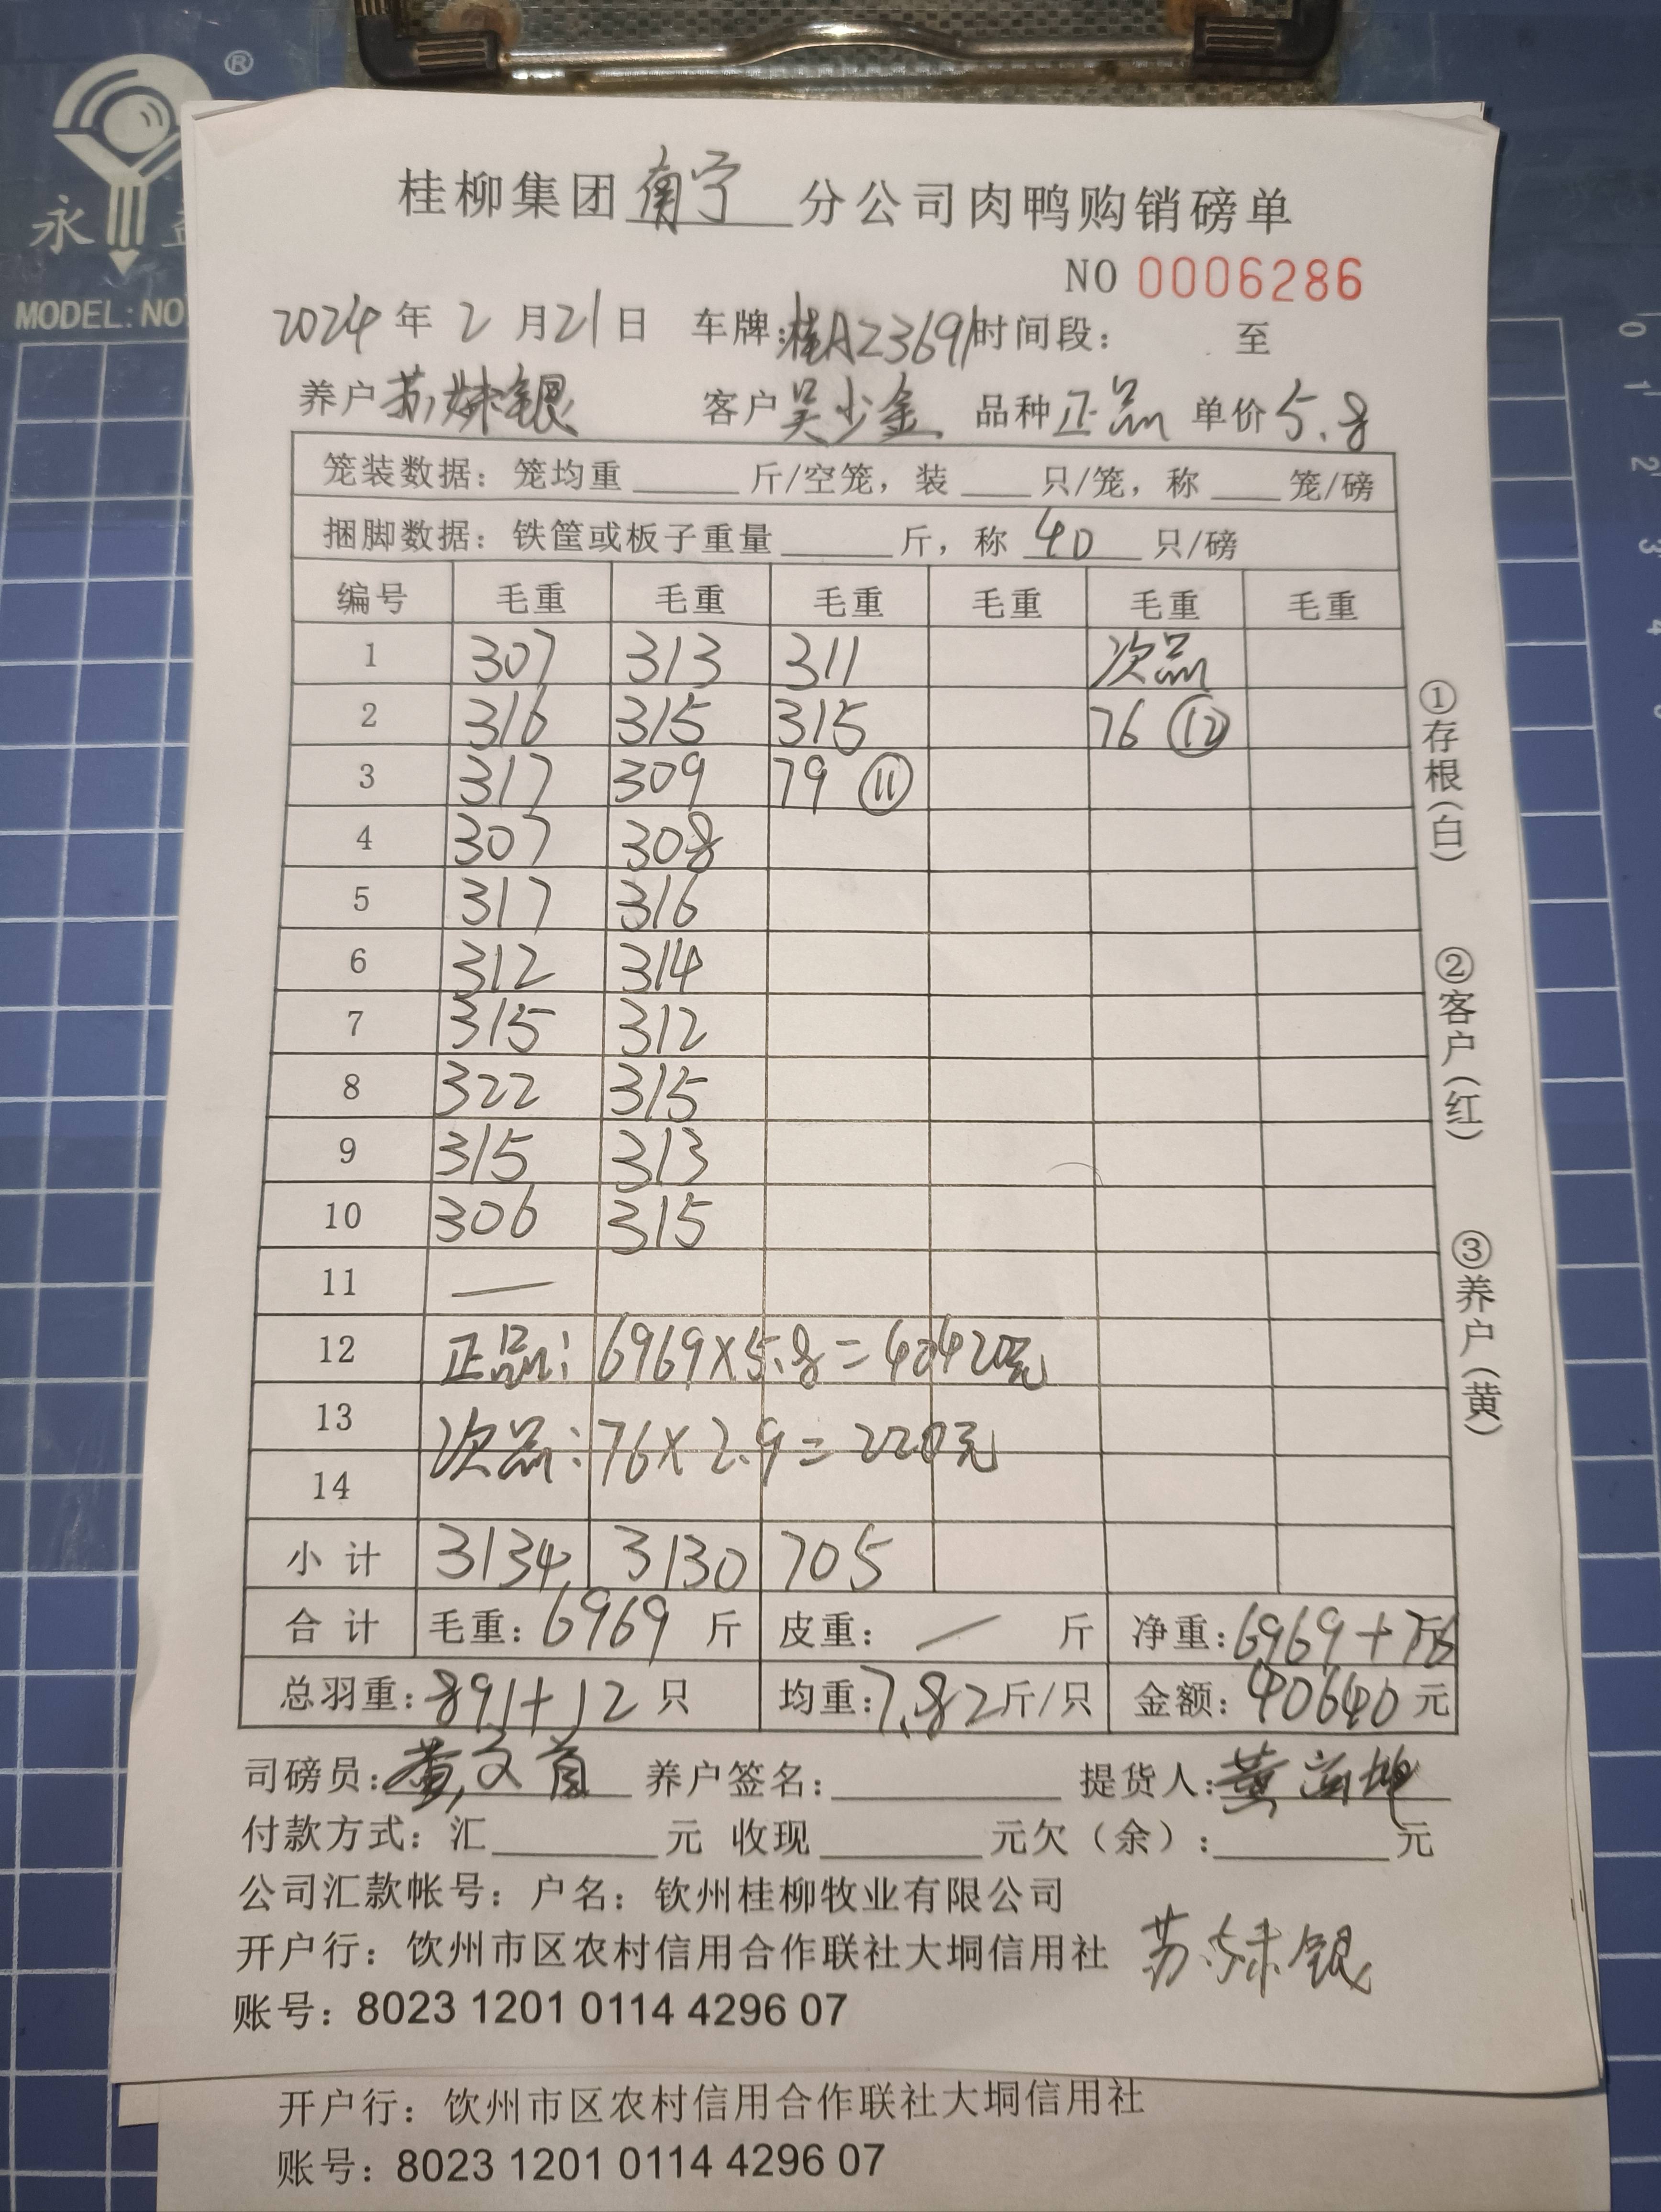 永
®
MODEL:NO
桂柳集团南宁分公司肉鸭购销磅单
NO 0006286
2024年2月21日 车牌:桂A23691时间段: 至
养户苏妹银 客户吴少金 品种正品 单价5.8
笼装数据:笼均重____斤/空笼,装____只/笼,称____笼/磅
捆脚数据:铁筐或板子重量____斤,称 40 只/磅
编号 毛重 毛重 毛重 毛重 毛重 毛重
1 307 313 311 次品
2 316 315 315 76 ⑫
3 317 309 79 ⑪
4 307 308
5 317 316
6 312 314
7 315 312
8 322 315
9 315 313
10 306 315
11 —
12 正品:6969×5.8=40420元
13 次品:76×2.9=220元
14
小计 3134 3130 705
合计 毛重:6969斤 皮重:— 斤 净重:6969+76斤
总羽重:891+12只 均重:7.82斤/只 金额:40640元
司磅员:黄 养户签名:____ 提货人:黄
付款方式:汇____元 收现____元欠(余):____元
公司汇款帐号:户名:钦州桂柳牧业有限公司
开户行:饮州市区农村信用合作联社大垌信用社 苏妹银
账号:8023 1201 0114 4296 07
①存根(白)
②客户(红)
③养户(黄)
开户行:饮州市区农村信用合作联社大垌信用社
账号:8023 1201 0114 4296 07
0
1
2
3
4